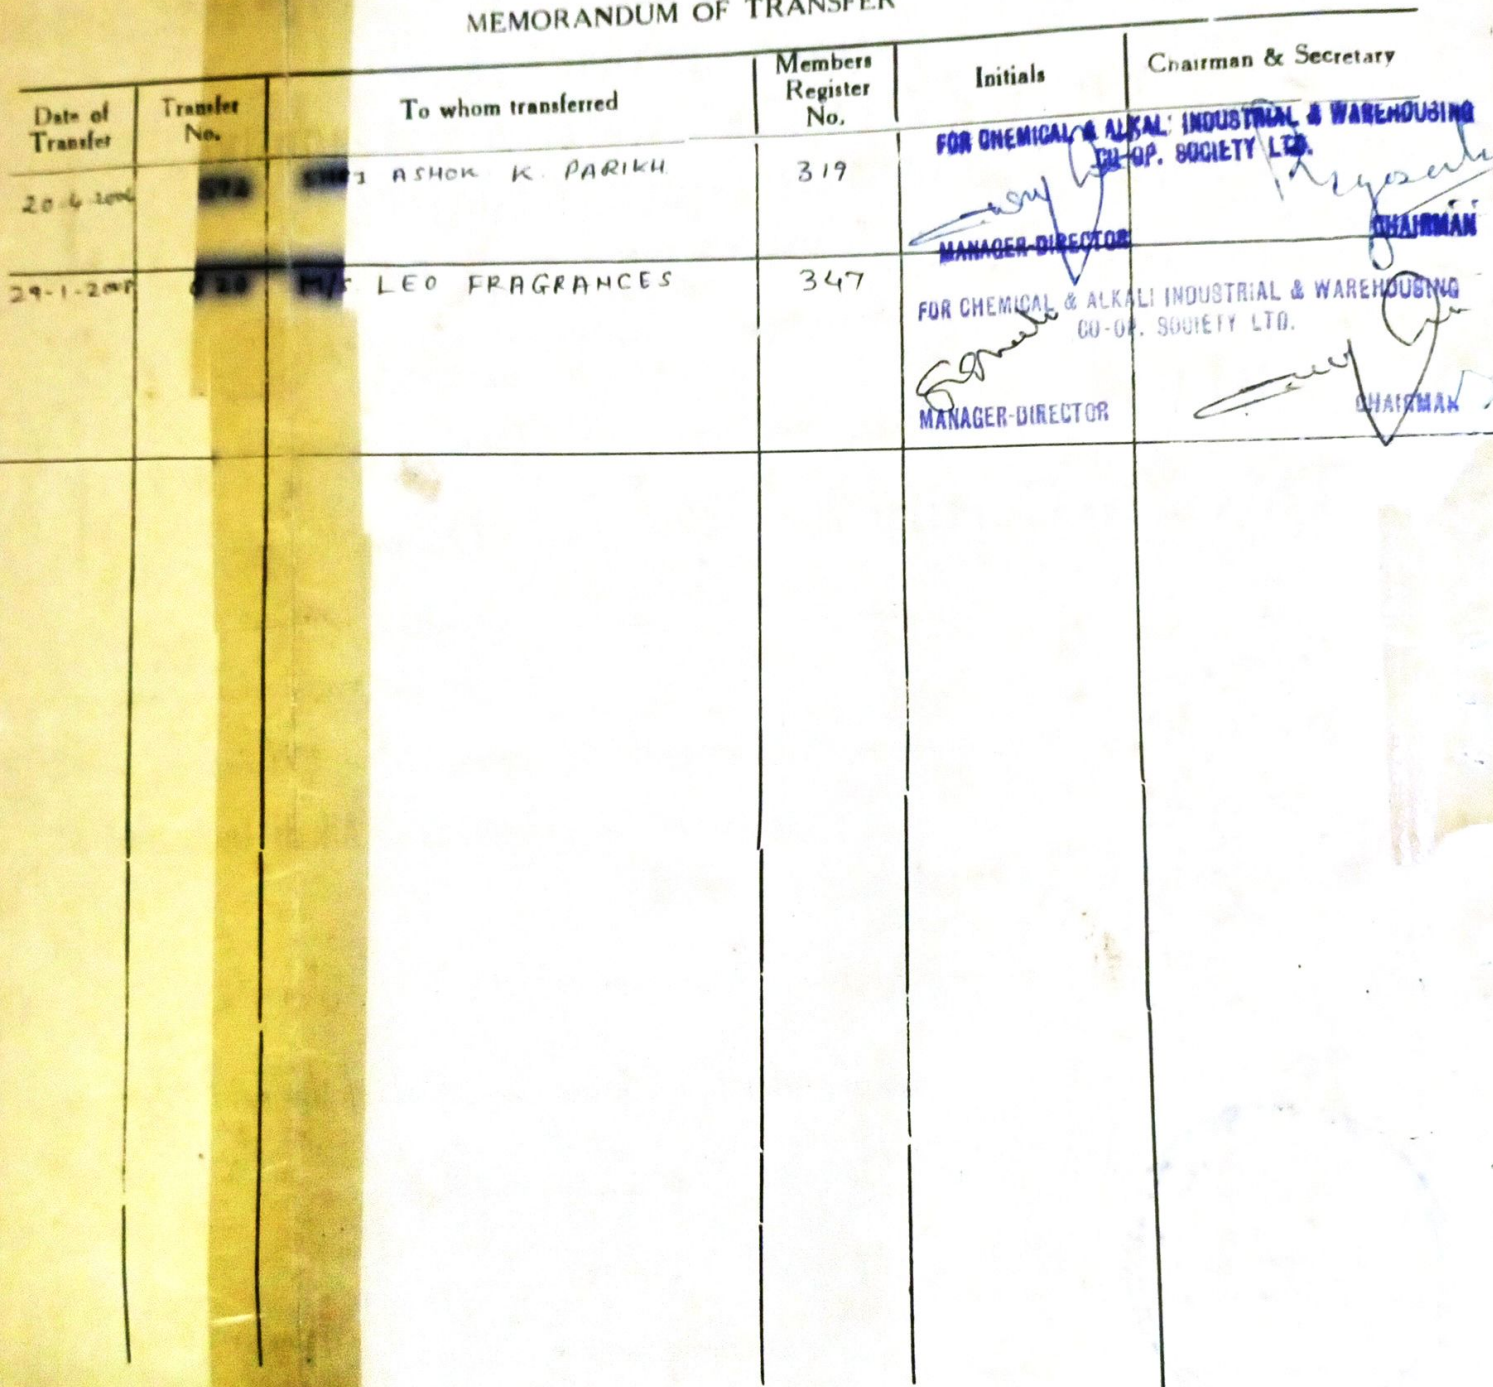 MEMORANDUM OF TRANSFER
Date of Transfer
Transfer No.
To whom transferred
Members Register No.
Initials
Chairman & Secretary
20-4-2006
ASHOK K. PARIKH
319
FOR CHEMICAL & ALKALI INDUSTRIAL & WAREHOUSING
CO-OP. SOCIETY LTD.
MANAGER-DIRECTOR
CHAIRMAN
29-1-
M/s LEO FRAGRANCES
347
FOR CHEMICAL & ALKALI INDUSTRIAL & WAREHOUSING
CO-OP. SOCIETY LTD.
MANAGER-DIRECTOR
CHAIRMAN